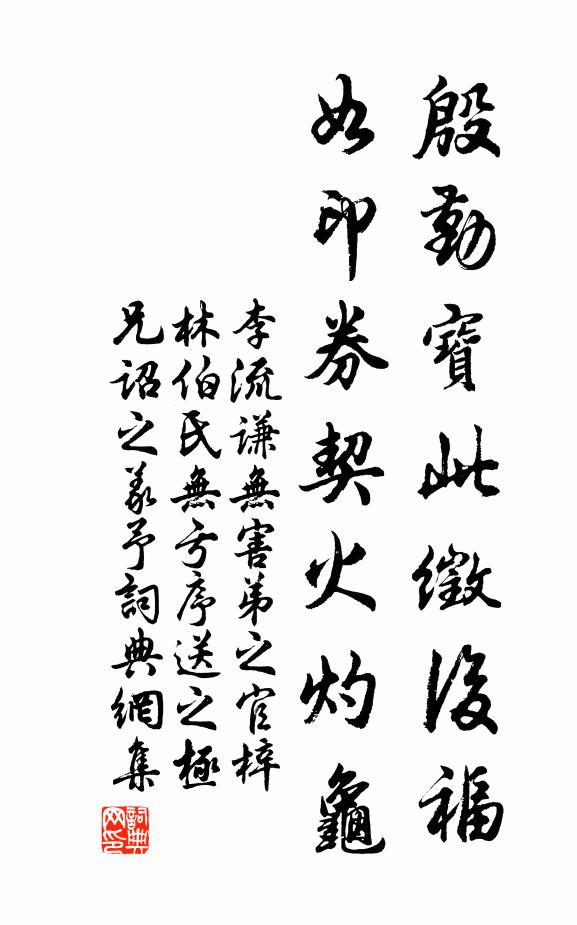 殷勤寶此徵後福
如印券契火灼龜
李流謙無害弟之官梓
林伯氏無亏序送之極
兄詔之義予詞典網集
詞典网印